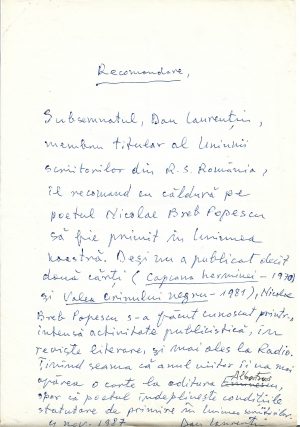 Recomandare,
Subsemnatul, Dan Laurențiu,
membru titular al Uniunii
scriitorilor din R.S. România,
îl recomand cu căldură pe
poetul Nicolae Breb Popescu
să fie primit în Uniunea
noastră. Deși nu a publicat decît
două cărți (Capcana herminei - 1970)
și Valea crinului negru - 1981), Nicolae
Breb Popescu s-a făcut cunoscut printr-o
intensă activitate publicistică, în
reviste literare, și mai ales la Radio.
Ținînd seama că anul viitor îi va mai
Albatros
apărea o carte la editura
sper că poetul îndeplinește condițiile
statutare de primire în Uniunea scriitorilor.
4 nov. 1987 Dan Laurențiu